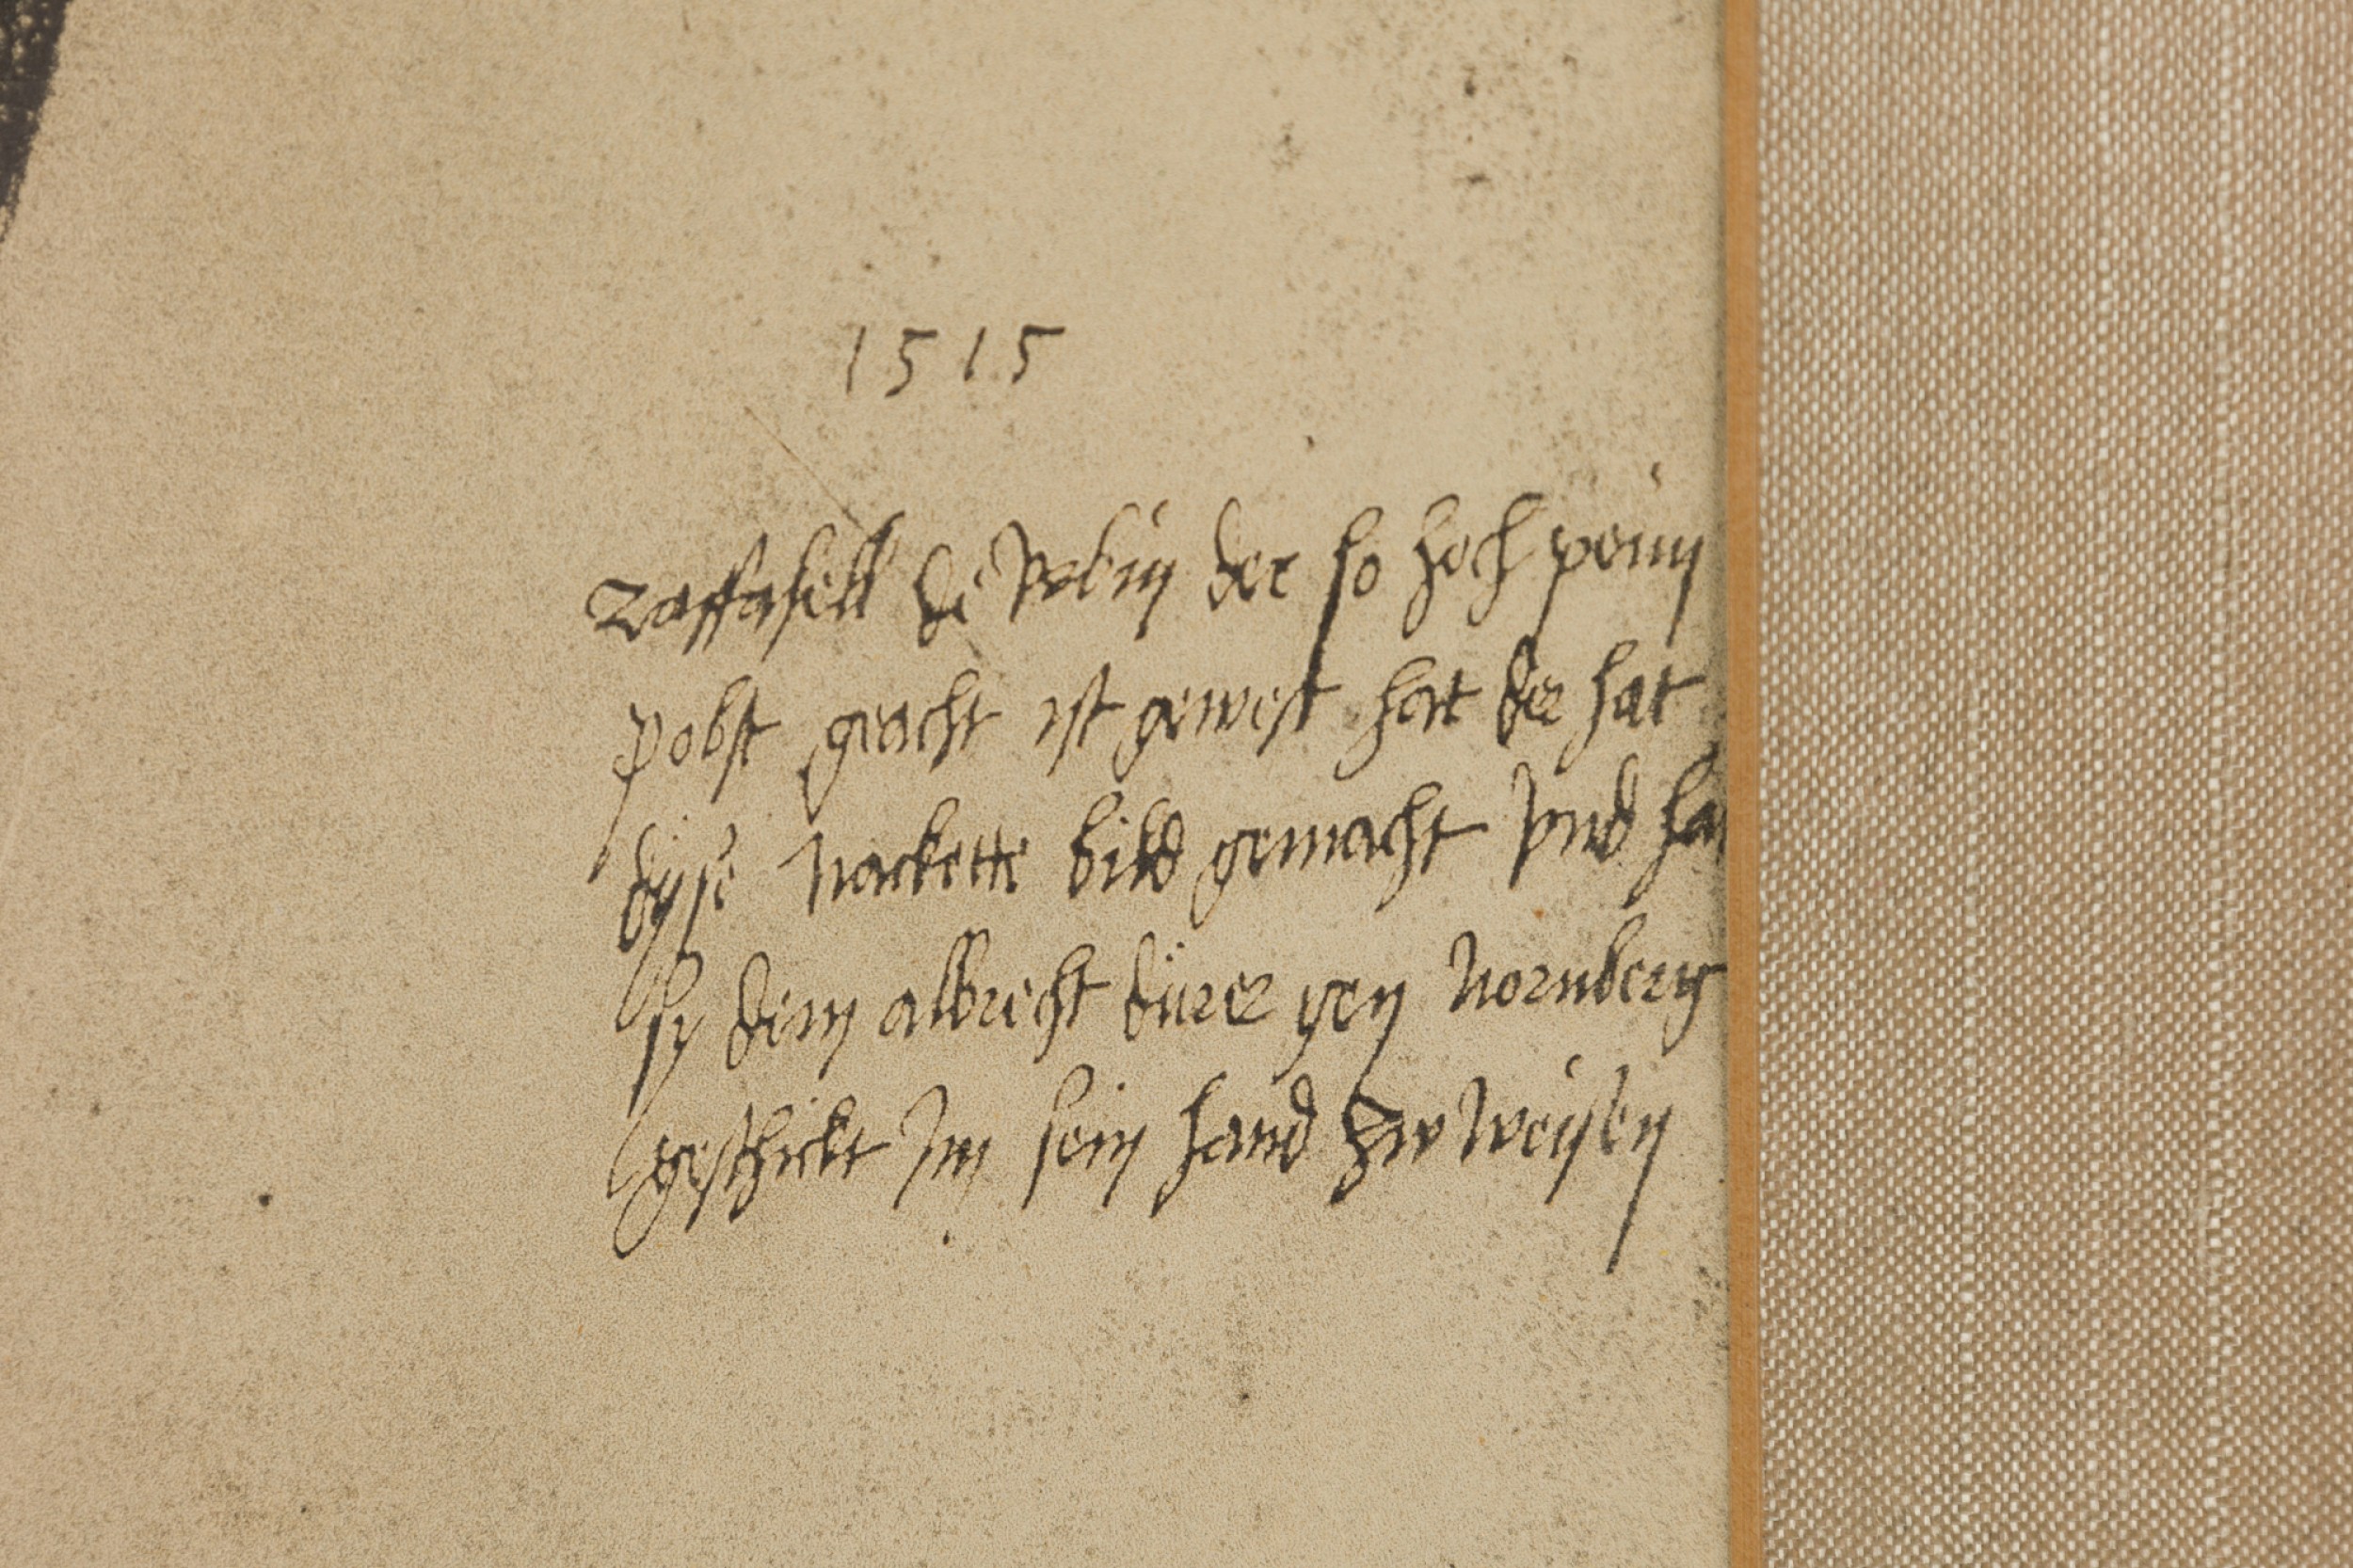 1515
Raffahell di Vrbin der so hoch peim
pobst geacht ist gewest hat der hat
dyse nackette bild gemacht vnd hat
sy dem albrecht dürer gen nornberg
geschickt Im sein hand zw weisen